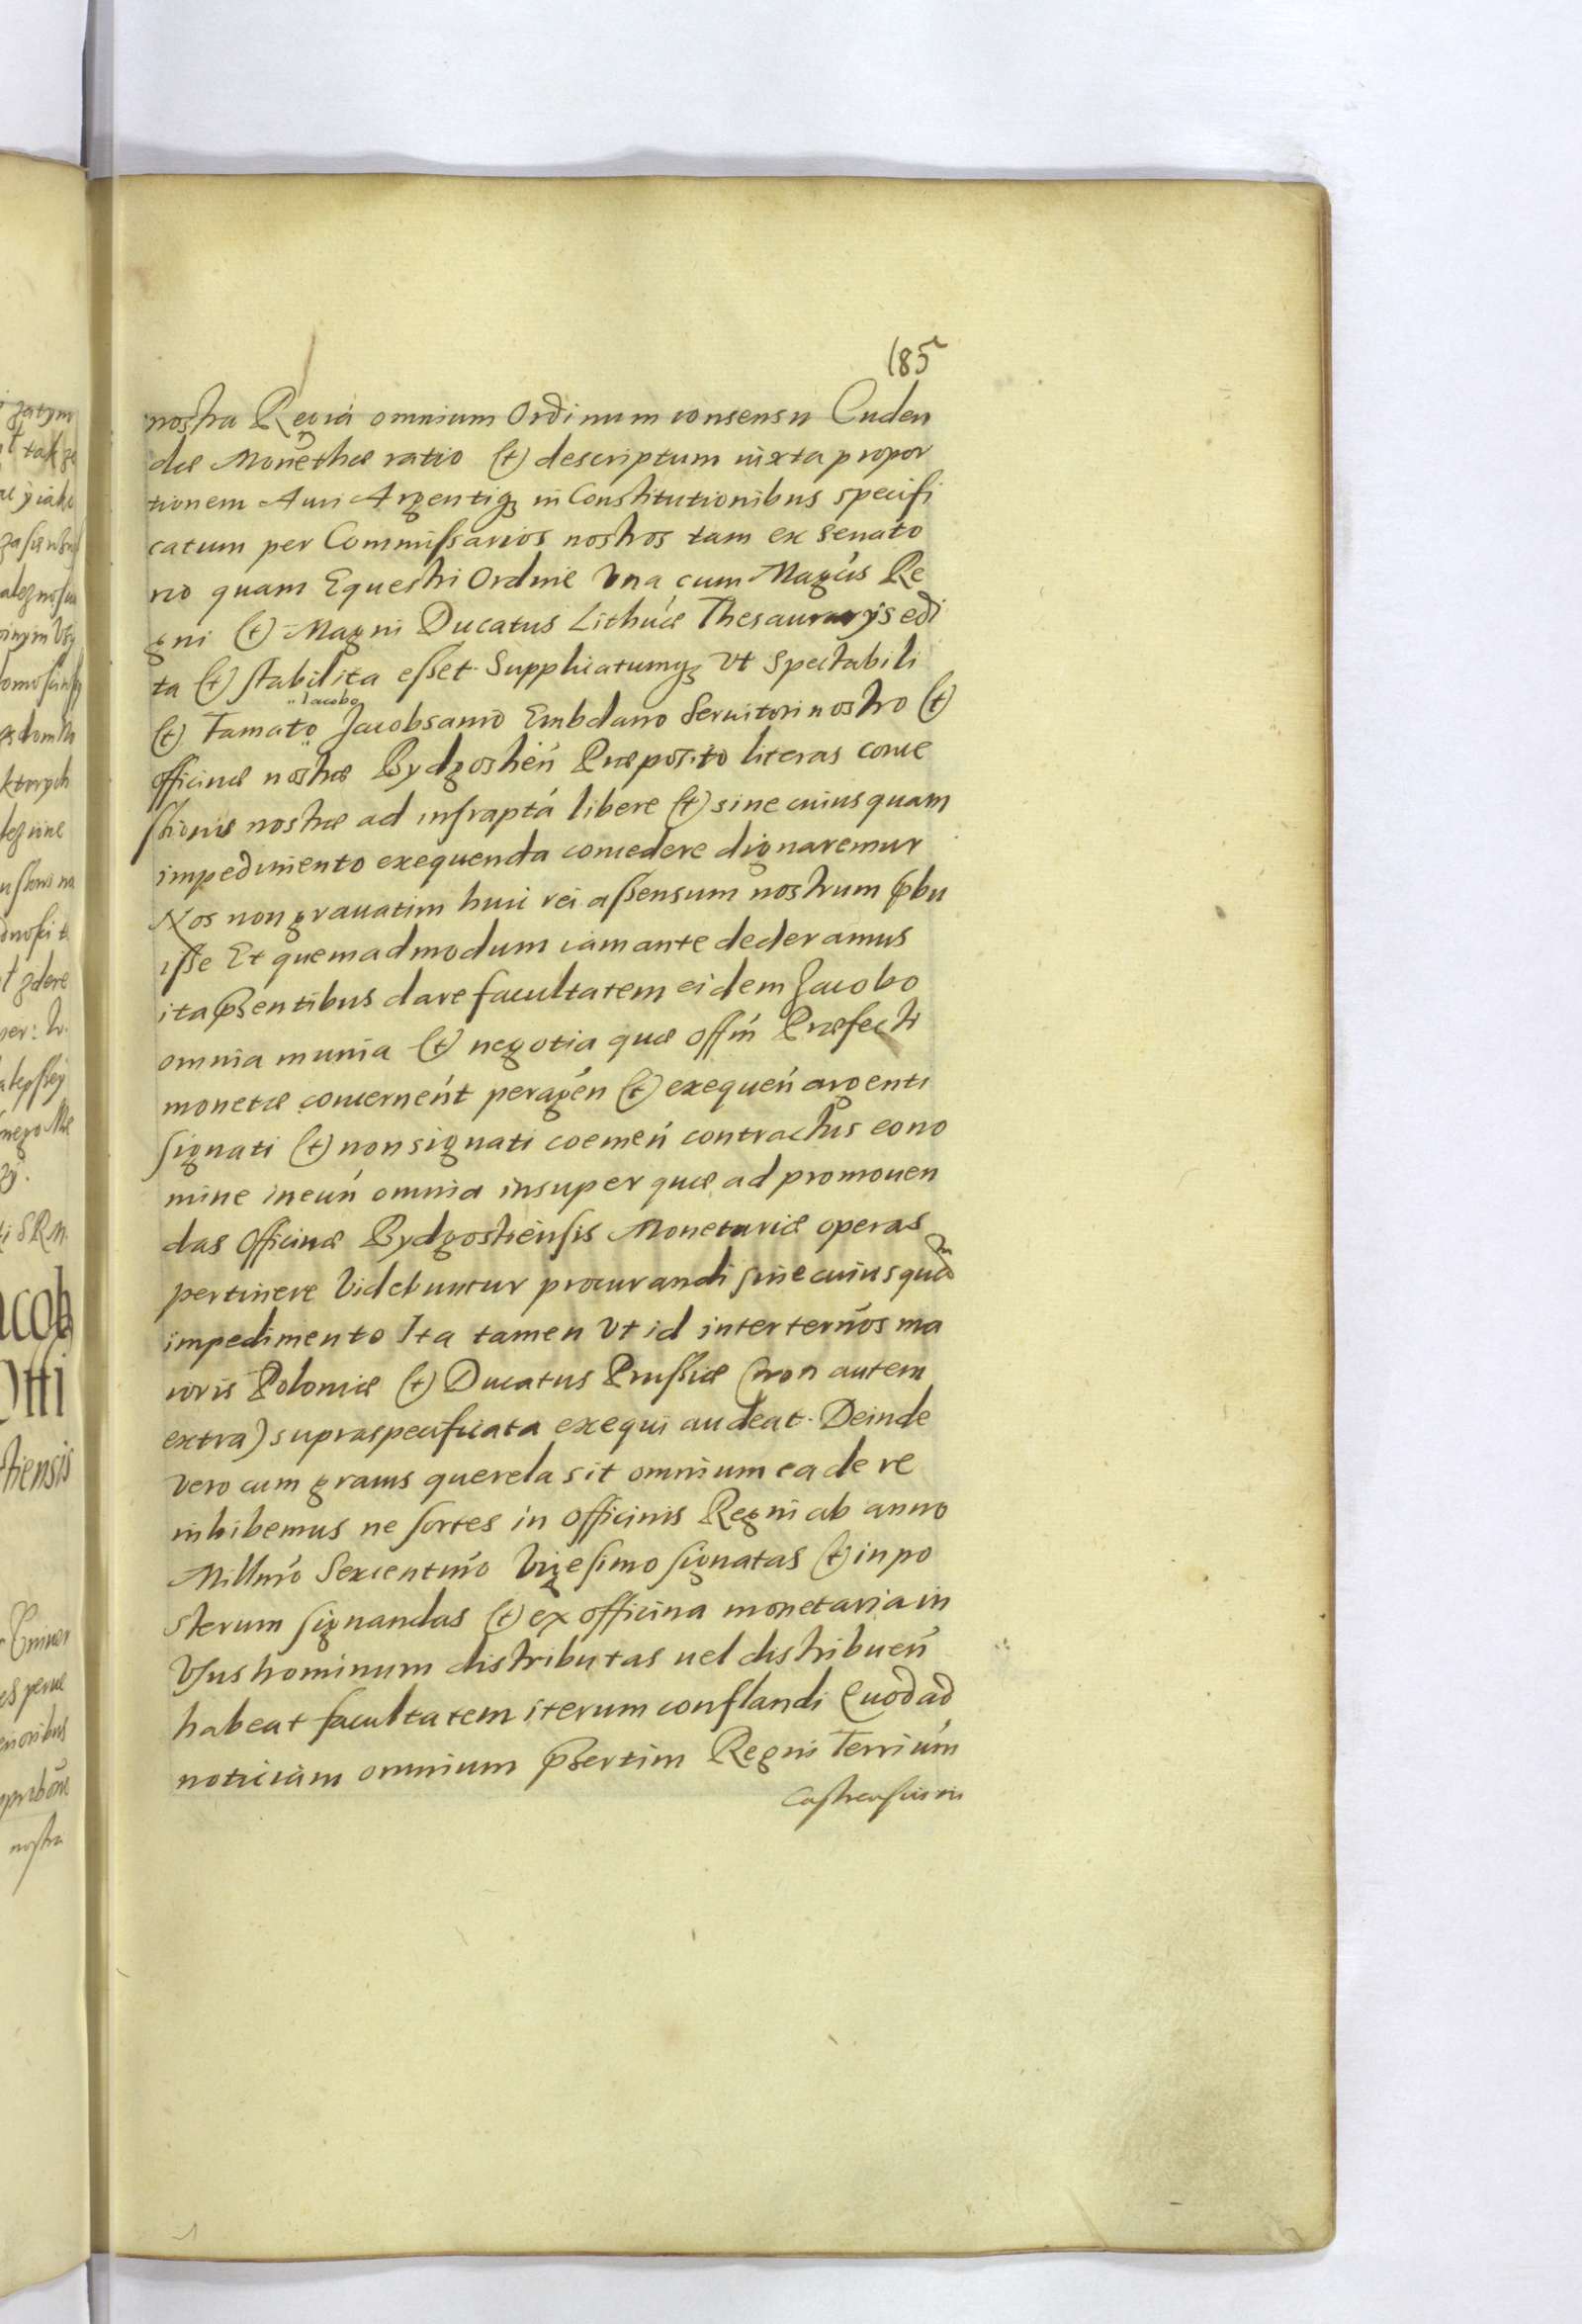 185
nostra Regia omnium Ordinum consensu Cuden
dæ Monethæ ratio (et) descriptum iuxta propor
tionem Auri Argentiq₃ in Constitutionibus specifi
catum per Commissarios nostros tam ex Senato
rio quam Equestri Ordine Vna cum Magcis Re
gni (et) Magni Ducatus Lithuæ Thesaurarijs edi
ta (et) stabilita esset Supplicatumq₃ Vt Spectabili
Jacobo
(et) Famato Jacobsano Embdano Seruitori nostro (et)
officinæ nostræ Bydgostien Præposito literas conce
ssionis nostræ ad infraptá libere (et) sine cuiusquam
impedimento exequenda concedere dignaremur
Nos non grauatim huic rei assensum nostrum pbu
isse Et quemadmodum iam ante dederamus
ita psentibus dare facultatem eidem Jacobo
omnia munia (et) negotia quæ offin Præfecti
monetæ concernent peragen (et) exequen argenti
signati (et) non signati coemen contractus eo no
mine ineun omnia insuper quæ ad promouen
das Officinæ Bydgostiensis Monetariæ operas
pertinere Videbuntur procurandi sine cuiusquam
impedimento Ita tamen Vt id inter ternos ma
ioris Poloniæ (et) Ducatus Prussiæ (non autem
extra) supraspecificata exequi audeat. Deinde
Vero cum grauis querela sit omnium ea de re
inhibemus ne sortes in Officinis Regni ab anno
Millmo Sexcentmo Vigesimo signatas (et) in po
sterum signandas (et) ex officina monetaria in
Vsus hominum distributas uel distribuen
habeat facultatem iterum conflandi Quod ad
noticiam omnium psertim Regni Terrium
Castrensium